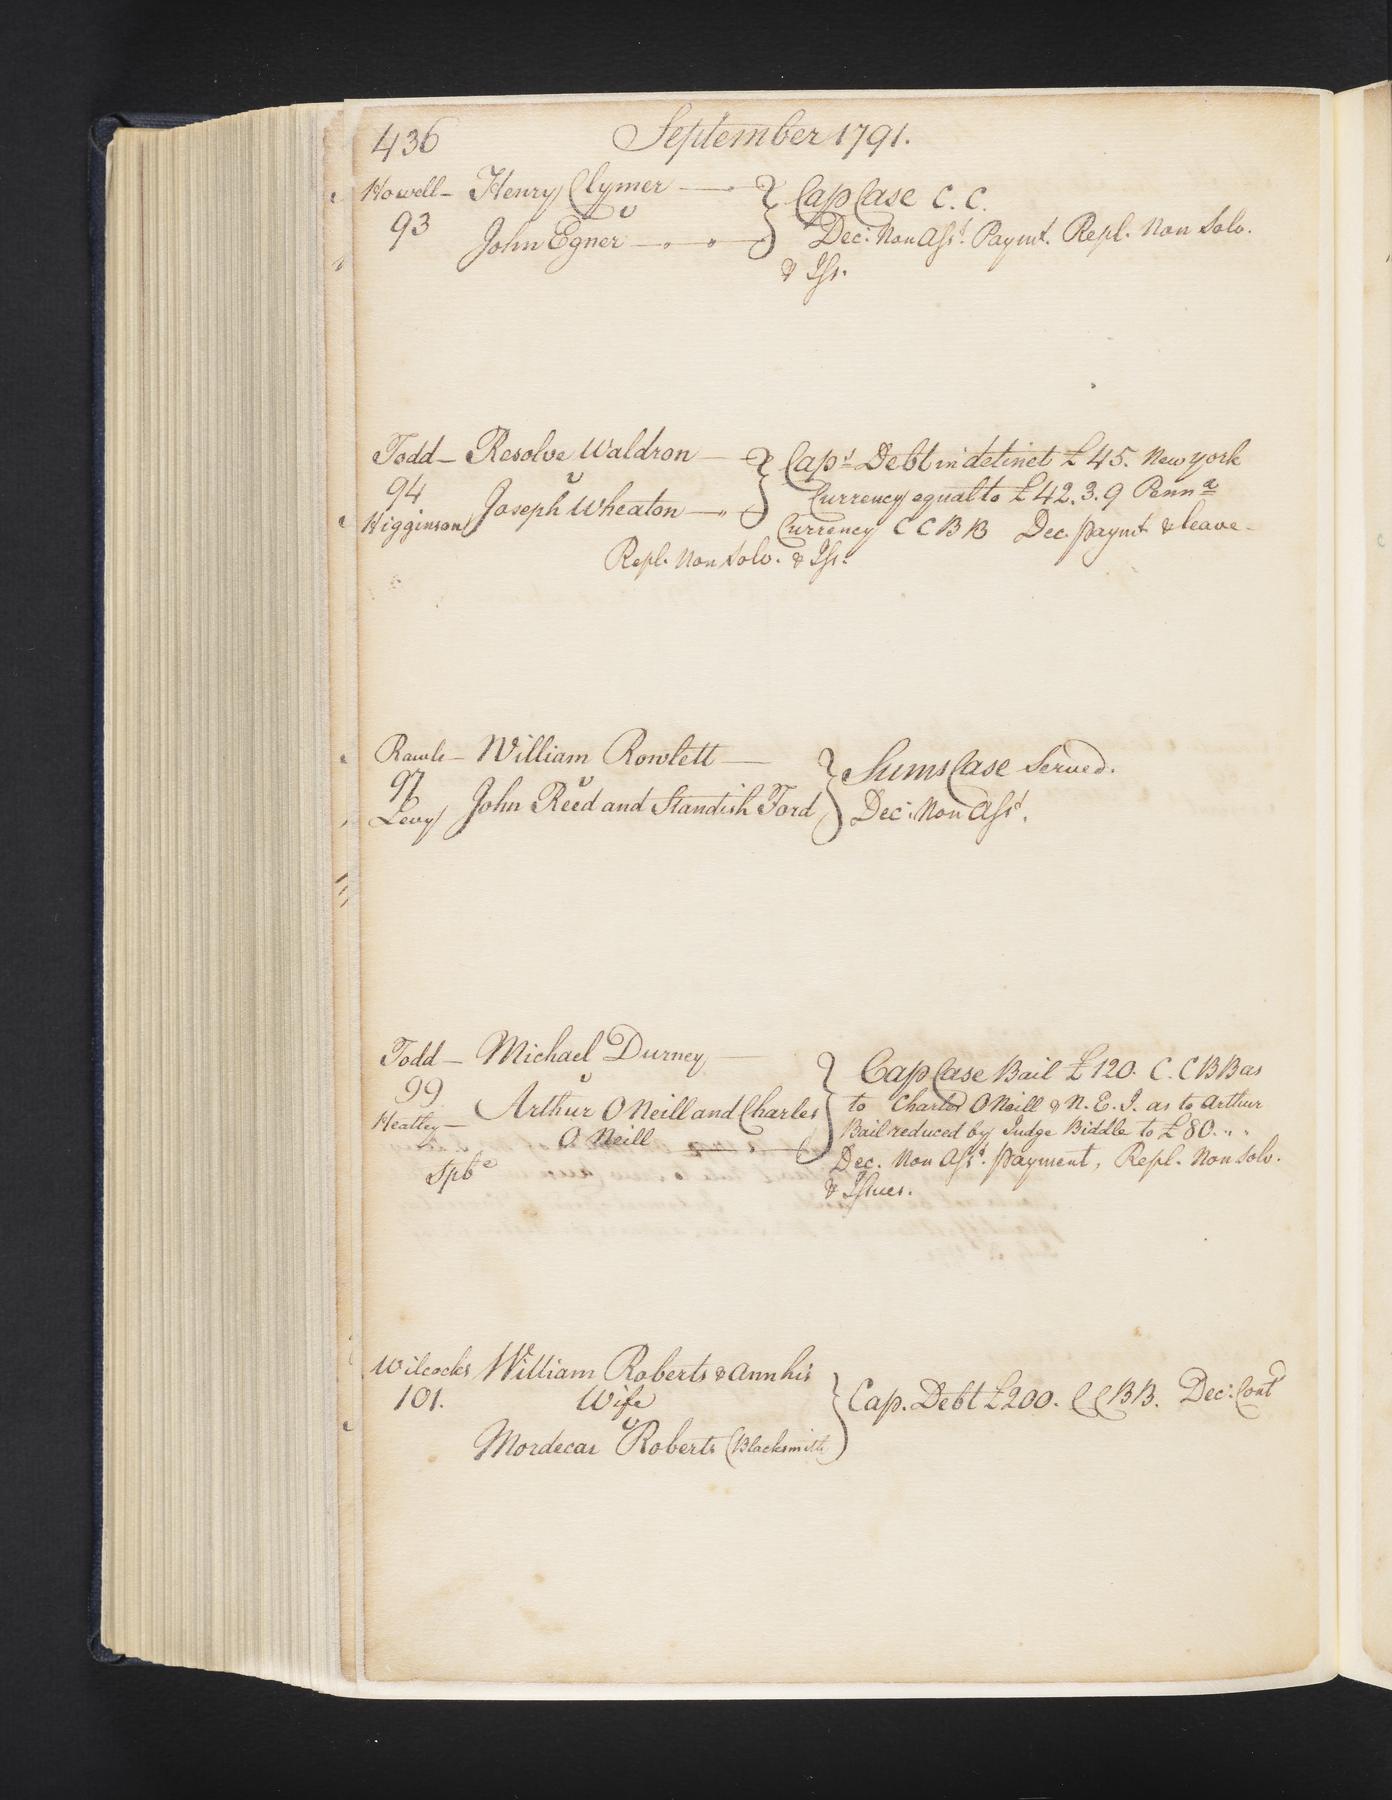 436 September 1791.
Howell— Henry Clymer — } Cap Case C. C.
93 v
John Egner — } Dec: Non Asst. Paymt. Repl. Non Solv.
& Iss.
Todd— Resolve Waldron — } Caps Debt in detinet £45. New york
94 v Currency equal to £42.3.9 Penna
Higginson Joseph Wheaton — } Currency C C B B Dec. paymt & leave—
Repl. Non Solv. & Iss.
Rawle— William Rowlett — } Sums Case Served.
97 v
Levy John Reed and Standish Ford } Dec: Non Asst.
Todd— Michael Durney — } Cap Case Bail £120. C. C B B as
99 v
Heatley— Arthur O Neill and Charles to Charles O Neill & N. E. I. as to Arthur
O Neill Bail reduced by Judge Biddle to £80. " "
Spbe Dec. Non Asst. payment, Repl. Non Solv.
& Issues.
Wilcocks William Roberts & Ann his
101. Wife } Cap. Debt £200. C C B B. Dec: Contd
v
Mordecai Roberts (Blacksmith)